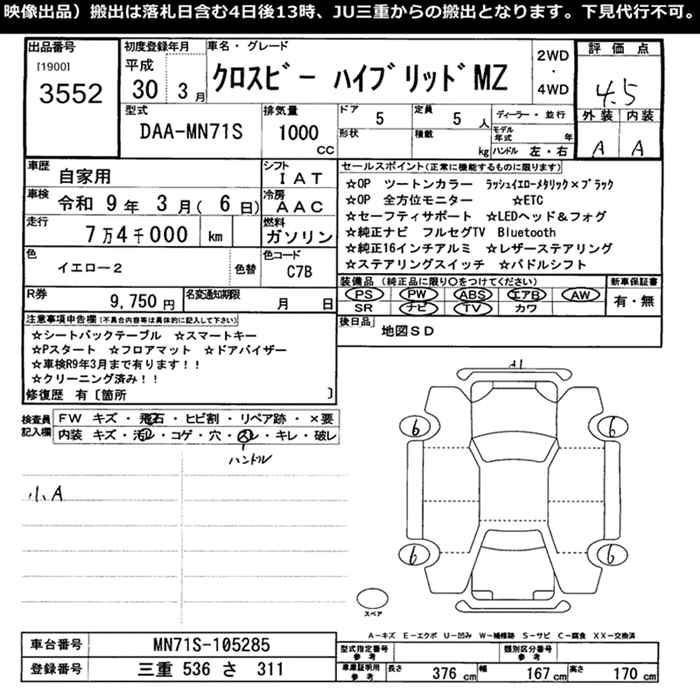 映像出品）搬出は落札日含む4日後13時、JU三重からの搬出となります。下見代行不可。
出品番号
[1900]
3552
初度登録年月
平成
30 3月
車名・グレード
クロスビー ハイブリッドMZ
2WD
・
4WD
評価点
4.5
外装 内装
A A
型式
DAA-MN71S
排気量
1000
CC
ドア
5
形状
定員
5 人
積載
kg
ディーラー・並行
モデル年式 年
ハンドル 左・右
車歴
自家用
シフト
IAT
車検
令和 9年 3月( 6日)
冷房
AAC
走行
7万4千000 km
燃料
ガソリン
色
イエロー2
色替
色コード
C7B
R券
9,750円
名変通知期限
月 日
セールスポイント(正常に機能するものに限ります)
☆OP ツートンカラー ラッシュイエローメタリック×ブラック
☆OP 全方位モニター ☆ETC
☆セーフティサポート ☆LEDヘッド＆フォグ
☆純正ナビ フルセグTV Bluetooth
☆純正16インチアルミ ☆レザーステアリング
☆ステアリングスイッチ ☆パドルシフト
装備品(純正品に限り○をつけてください)
PS PW ABS エアB AW
SR ナビ TV カワ
新車保証書
有・無
後日品
地図SD
注意事項申告欄(不具合内容等は具体的に記入して下さい)
☆シートバックテーブル ☆スマートキー
☆Pスタート ☆フロアマット ☆ドアバイザー
☆車検R9年3月まで有ります！！
☆クリーニング済み！！
修復歴 有〔箇所 〕
検査員記入欄
FW キズ・飛石・ヒビ割・リペア跡・×要
内装 キズ・汚レ・コゲ・穴・スレ・キレ・破レ
ハンドル
小A
A1
6 6
6 6
スペア
A－キズ E－エクボ U－凹み W－補修跡 S－サビ C－腐食 XX－交換済
車台番号
MN71S-105285
登録番号
三重 536 さ 311
型式指定番号
参考
類別区分番号
参考
車庫証明用
参考
長さ 376 cm 幅 167 cm 高さ 170 cm